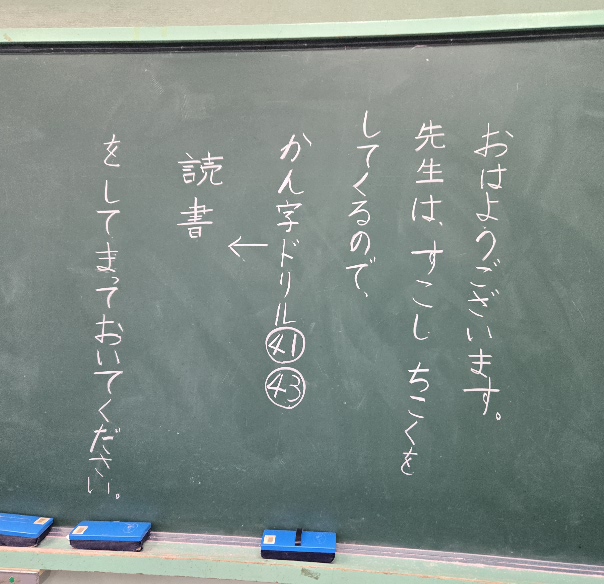 おはようございます。
先生は、すこし ちこくを
してくるので、
かん字ドリル㊶㊸
←
読書
をしてまっておいてください。